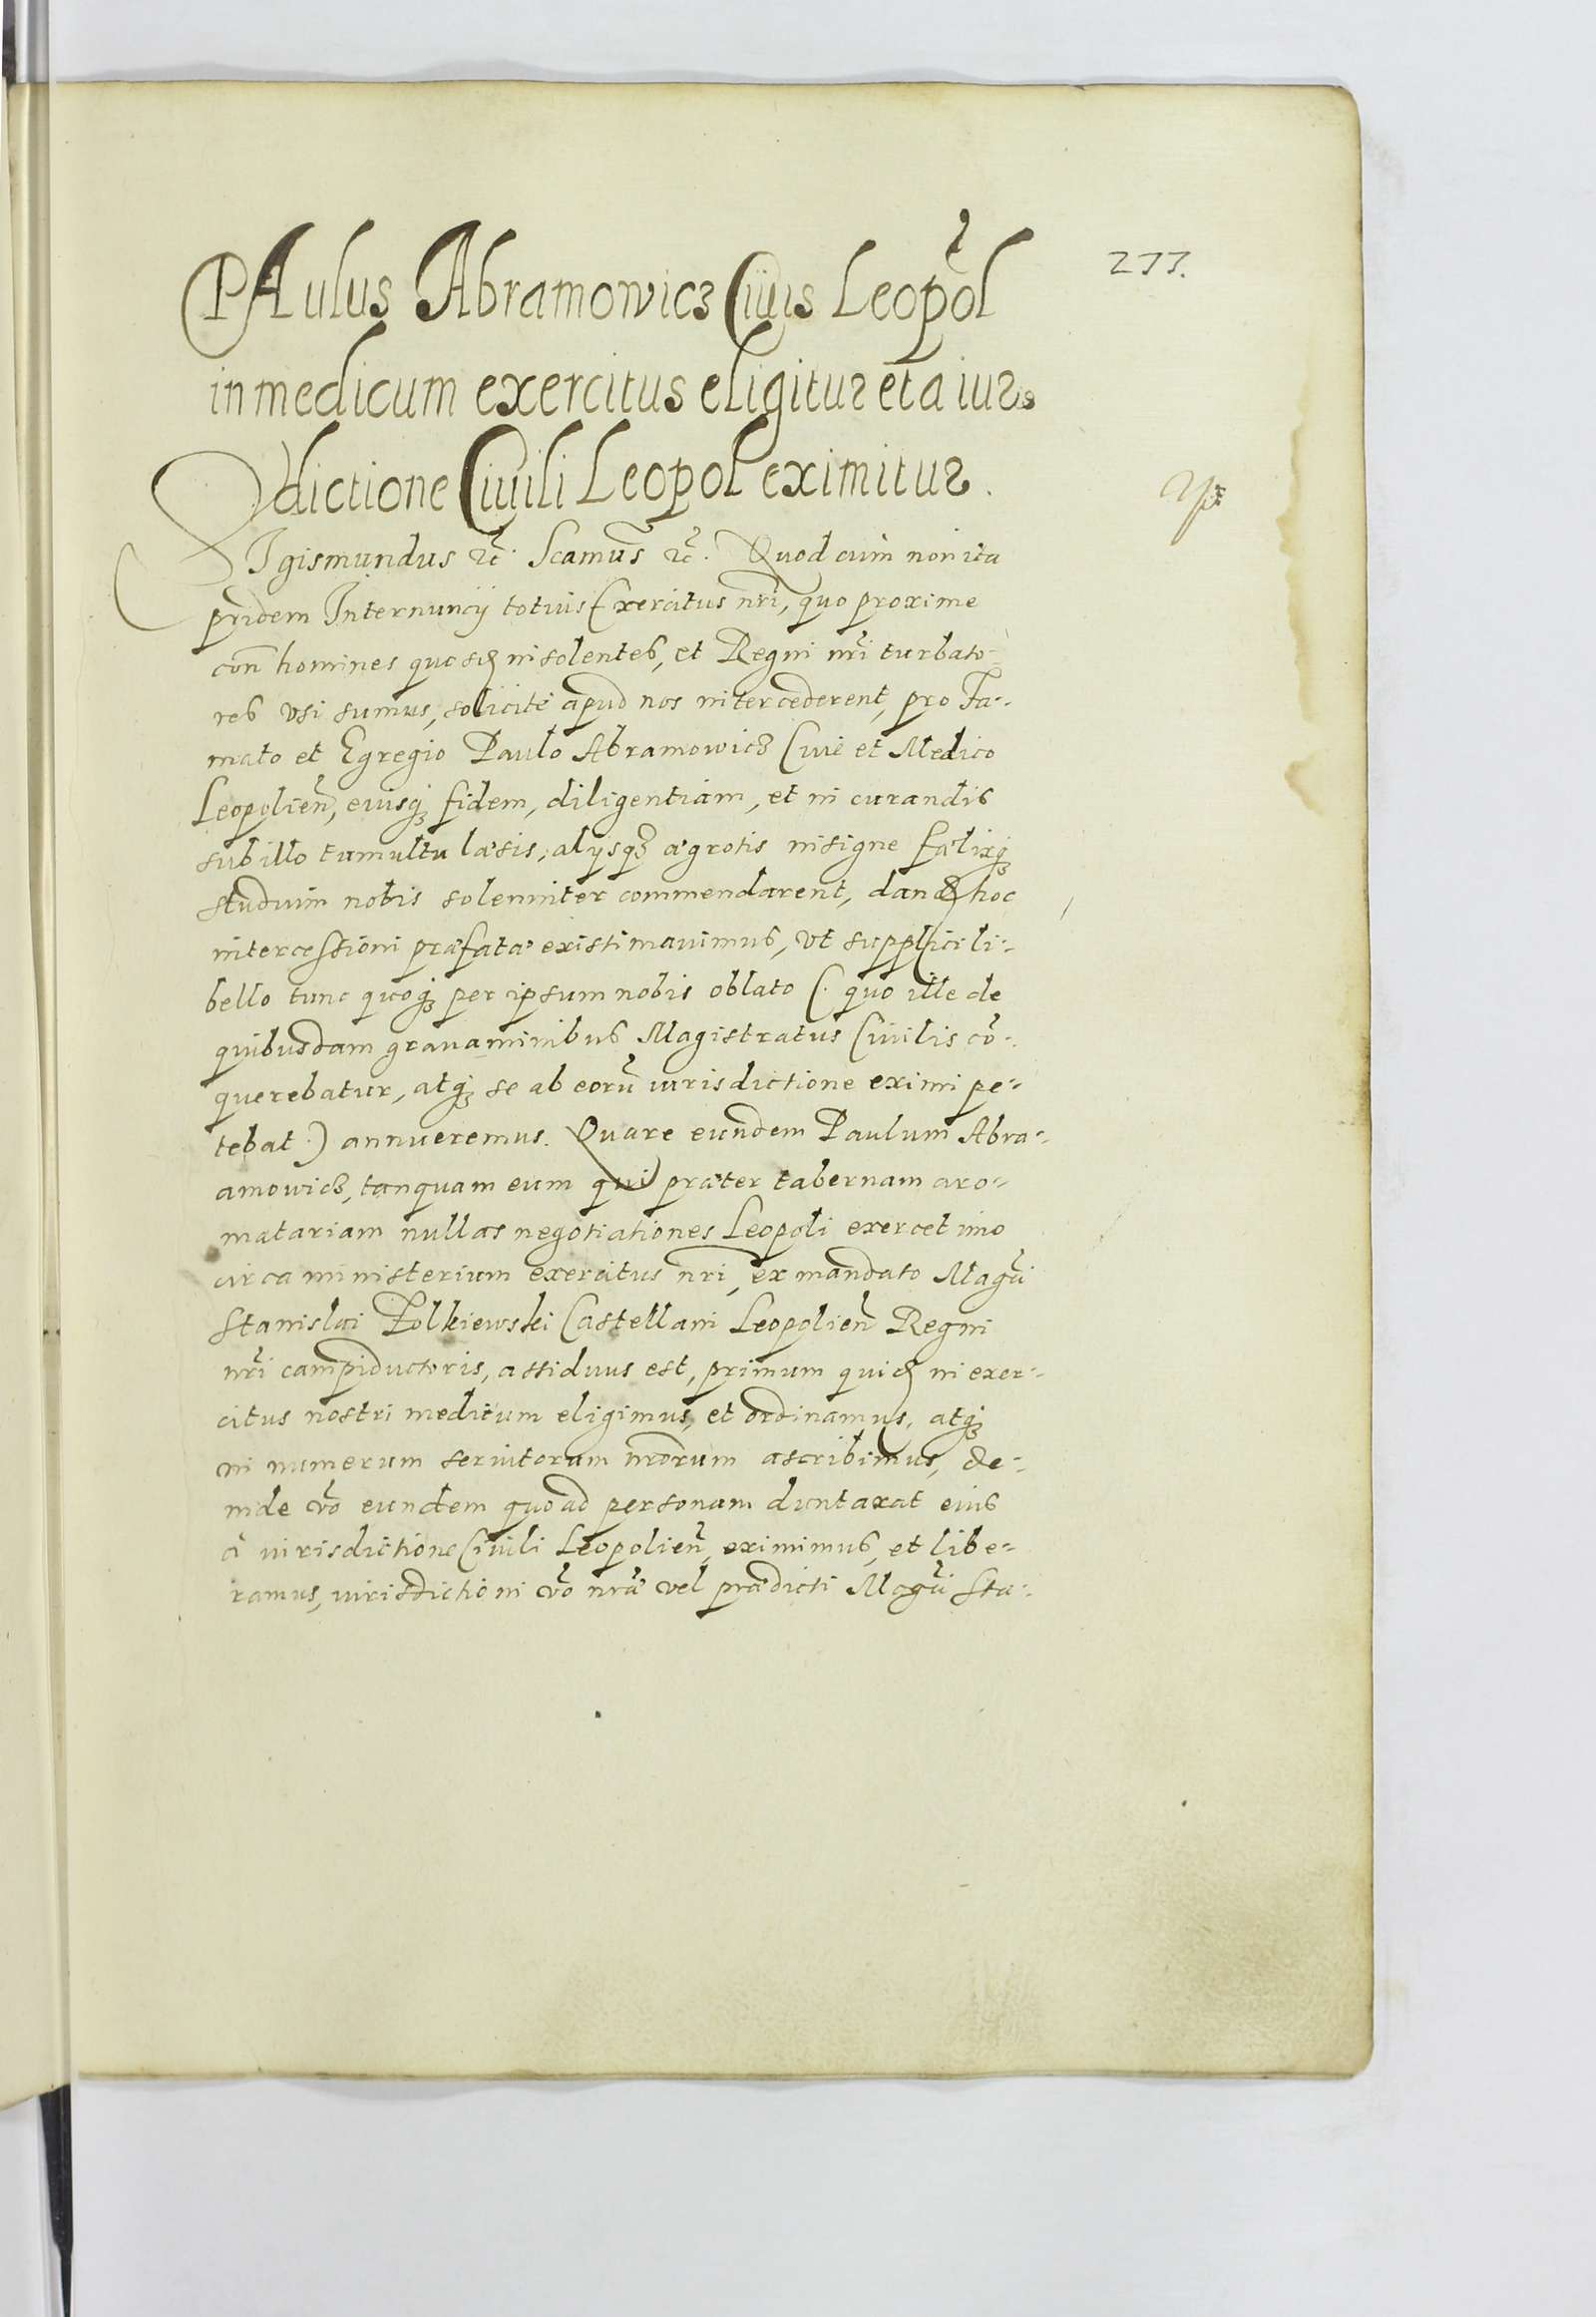 PAulus Abramowicz Ciuis Leopol
233.
in medicum exercitus eligitur et a iuris
dictione Ciuili Leopol eximitur.
SIgismundus etc. Scamus etc. Quod cum non ita
pridem Internuncij totius Exercitus nri, quo proxime
con homines quosd insolentes, et Regni nri turbato-
res vsi sumus, solicité apud nos intercederent, pro Fa-
mato et Egregio Paulo Abramowicz Ciue et Medico
Leopolien, eiusq fidem, diligentiam, et in curandis
sub illo tumultu læsis, alijsq ægrotis insigne fælixq
studium nobis solenniter commendarent, dand hoc
intercessioni præfatæ existimauimus, vt supplici li-
bello tunc quoq per ipsum nobis oblato (. quo ille de
quibusdam grauaminibus Magistratus Ciuilis cō-
querebatur, atq se ab eorū iurisdictione eximi pe-
tebat .) annueremus. Quare eundem Paulum Abra-
amowicz, tanquam eum qui præter tabernam aro-
matariam nullas negotiationes Leopoli exercet imo
circa ministerium exercitus nri, ex mandato Magci
Stanislai Zolkiewski Castellani Leopolien Regni
nri campiductoris, assiduus est, primum quid in exer-
citus nostri medicum eligimus, et ordinamus, atq
in numerum seruitorum nrorum ascribimus, de-
inde vō eundem quo ad personam duntaxat eius
á iurisdictione Ciuili Leopolien, eximimus, et libe-
ramus, iurisdictioni vō nræ vel prædicti Magci Sta-